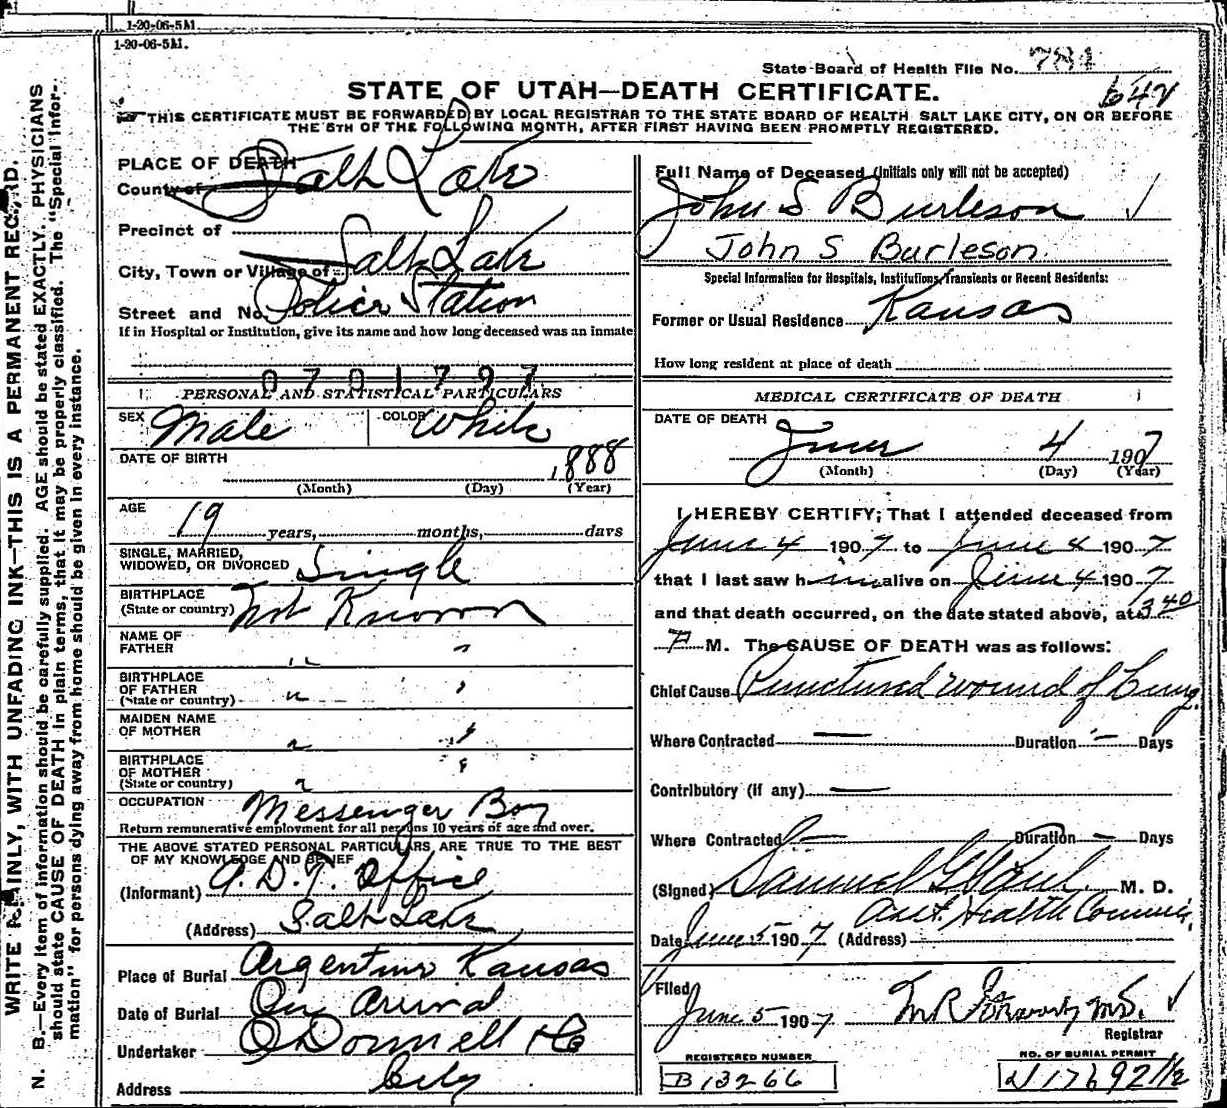 1-20-06-5M.
1-20-06-5M.
WRITE PLAINLY, WITH UNFADING INK—THIS IS A PERMANENT RECORD.
N. B.—Every item of information should be carefully supplied. AGE should be stated EXACTLY. PHYSICIANS
should state CAUSE OF DEATH in plain terms, that it may be properly classified. The "Special Infor-
mation" for persons dying away from home should be given in every instance.
State Board of Health File No. 781
STATE OF UTAH—DEATH CERTIFICATE.
642
THIS CERTIFICATE MUST BE FORWARDED BY LOCAL REGISTRAR TO THE STATE BOARD OF HEALTH SALT LAKE CITY, ON OR BEFORE
THE 5TH OF THE FOLLOWING MONTH, AFTER FIRST HAVING BEEN PROMPTLY REGISTERED.
PLACE OF DEATH
County of Salt Lake
Precinct of
City, Town or Village of Salt Lake
Street and No. Police Station
If in Hospital or Institution, give its name and how long deceased was an inmate
0701797
PERSONAL AND STATISTICAL PARTICULARS
SEX Male COLOR White
DATE OF BIRTH 1888
(Month) (Day) (Year)
AGE 19 years, months, days
SINGLE, MARRIED,
WIDOWED, OR DIVORCED Single
BIRTHPLACE
(State or country) Not Known
NAME OF
FATHER " "
BIRTHPLACE
OF FATHER
(State or country) " "
MAIDEN NAME
OF MOTHER " "
BIRTHPLACE
OF MOTHER
(State or country) " "
OCCUPATION Messenger Boy
Return remunerative employment for all persons 10 years of age and over.
THE ABOVE STATED PERSONAL PARTICULARS, ARE TRUE TO THE BEST
OF MY KNOWLEDGE AND BELIEF
(Informant) A.D.T. Office
(Address) Salt Lake
Place of Burial Argentine Kansas
Date of Burial On Arrival
Undertaker O'Donnell & Co
Address City
Full Name of Deceased (Initials only will not be accepted)
John S Burleson
John S Burleson.
Special Information for Hospitals, Institutions, Transients or Recent Residents:
Former or Usual Residence Kansas
How long resident at place of death
MEDICAL CERTIFICATE OF DEATH
DATE OF DEATH
June 4 1907
(Month) (Day) (Year)
I HEREBY CERTIFY; That I attended deceased from
June 4 1907 to June 4 1907
that I last saw him alive on June 4 1907
and that death occurred, on the date stated above, at 3 40
P M. The CAUSE OF DEATH was as follows:
Chief Cause Punctured wound of Lung.
Where Contracted — Duration — Days
Contributory (if any) —
Where Contracted — Duration — Days
(Signed) Samuel G Paul. M. D.
Asst. Health Commis.
Date June 5 1907 (Address)
Filed
June 5 1907 M R M.D.
Registrar
REGISTERED NUMBER
B 13266
NO. OF BURIAL PERMIT
17692 1/2